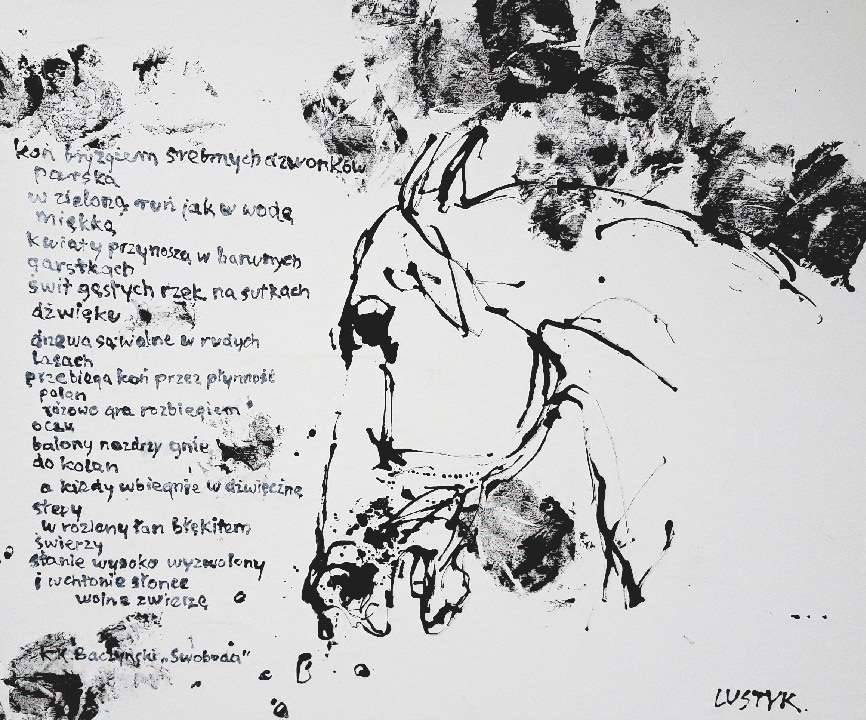 koń bryzgiem srebrnych dzwonków
parska
w zieloną ruń jak w wodę
miękką
kwiaty przynoszą w barwnych
garstkach
świt gęstych rzek na sutkach
dźwięku
drzewa są wolne w rudych
lasach
przebiega koń przez płynność
polan
różowo gra rozbiegiem
oczu
balony nozdrzy gnie
do kolan
a kiedy wbiegnie w dźwięczne
stepy
w rozlany łan błękitem
świerzy
stanie wysoko wyzwolony
i wchłonie słońce
wolne zwierzę
K.K. Baczyński „Swoboda"
LUSTYK.